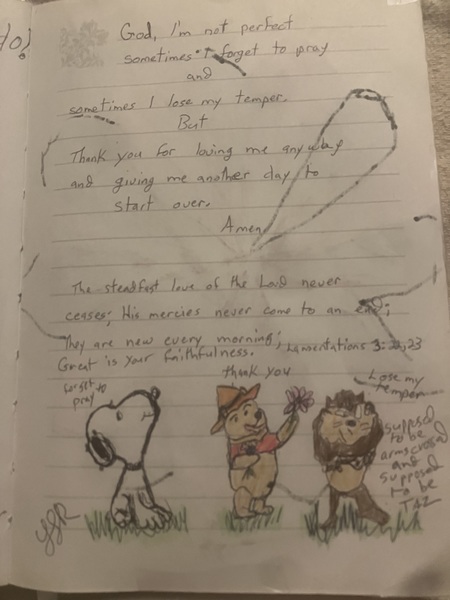 God, I'm not perfect
sometimes I forget to pray
and
sometimes I lose my temper.
But
Thank you for loving me anyway
and giving me another day to
start over.
Amen
The steadfast love of the Lord never
ceases; His mercies never come to an end;
They are new every morning;
Great is your faithfulness. Lamentations 3:22,23
thank you
forget to
pray
Lose my
temper
supposed
to be
arms crossed
and
supposed
to be
TAZ